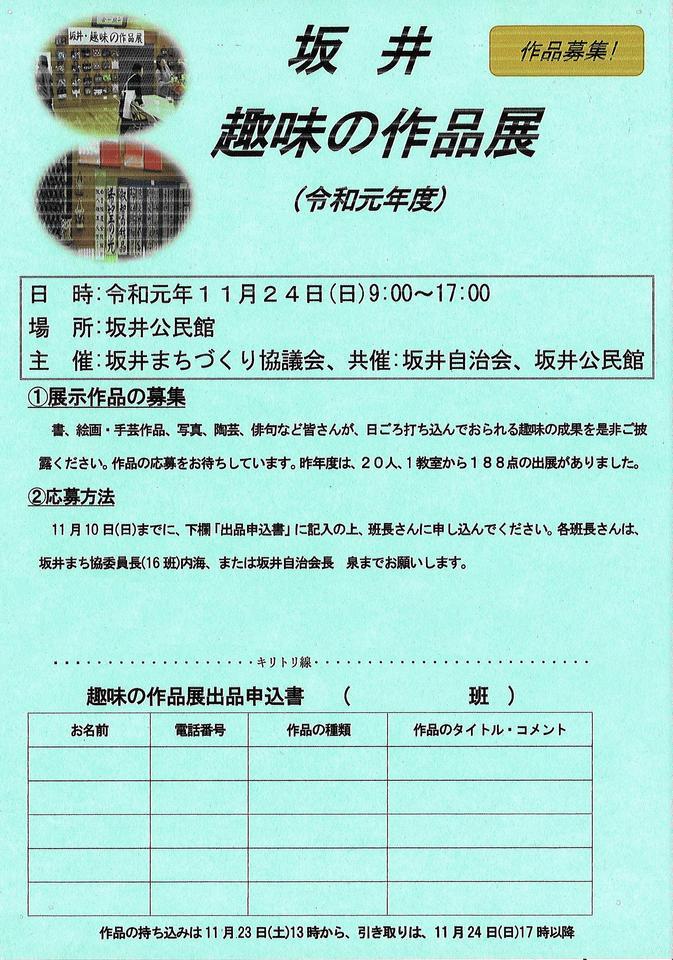 坂井・趣味の作品展
坂 井
作品募集!
趣味の作品展
(令和元年度)
日 時:令和元年11月24日(日)9:00～17:00
場 所:坂井公民館
主 催:坂井まちづくり協議会、共催:坂井自治会、坂井公民館
①展示作品の募集
書、絵画・手芸作品、写真、陶芸、俳句など皆さんが、日ごろ打ち込んでおられる趣味の成果を是非ご披
露ください。作品の応募をお待ちしています。昨年度は、20人、1教室から188点の出展がありました。
②応募方法
11月10日(日)までに、下欄「出品申込書」に記入の上、班長さんに申し込んでください。各班長さんは、
坂井まち協委員長(16班)内海、または坂井自治会長 泉までお願いします。
・・・・・・・・・・・・・・・・・・・キリトリ線・・・・・・・・・・・・・・・・・・・・・・・・・・
趣味の作品展出品申込書 ( 班 )
お名前 電話番号 作品の種類 作品のタイトル・コメント
作品の持ち込みは11月23日(土)13時から、引き取りは、11月24日(日)17時以降